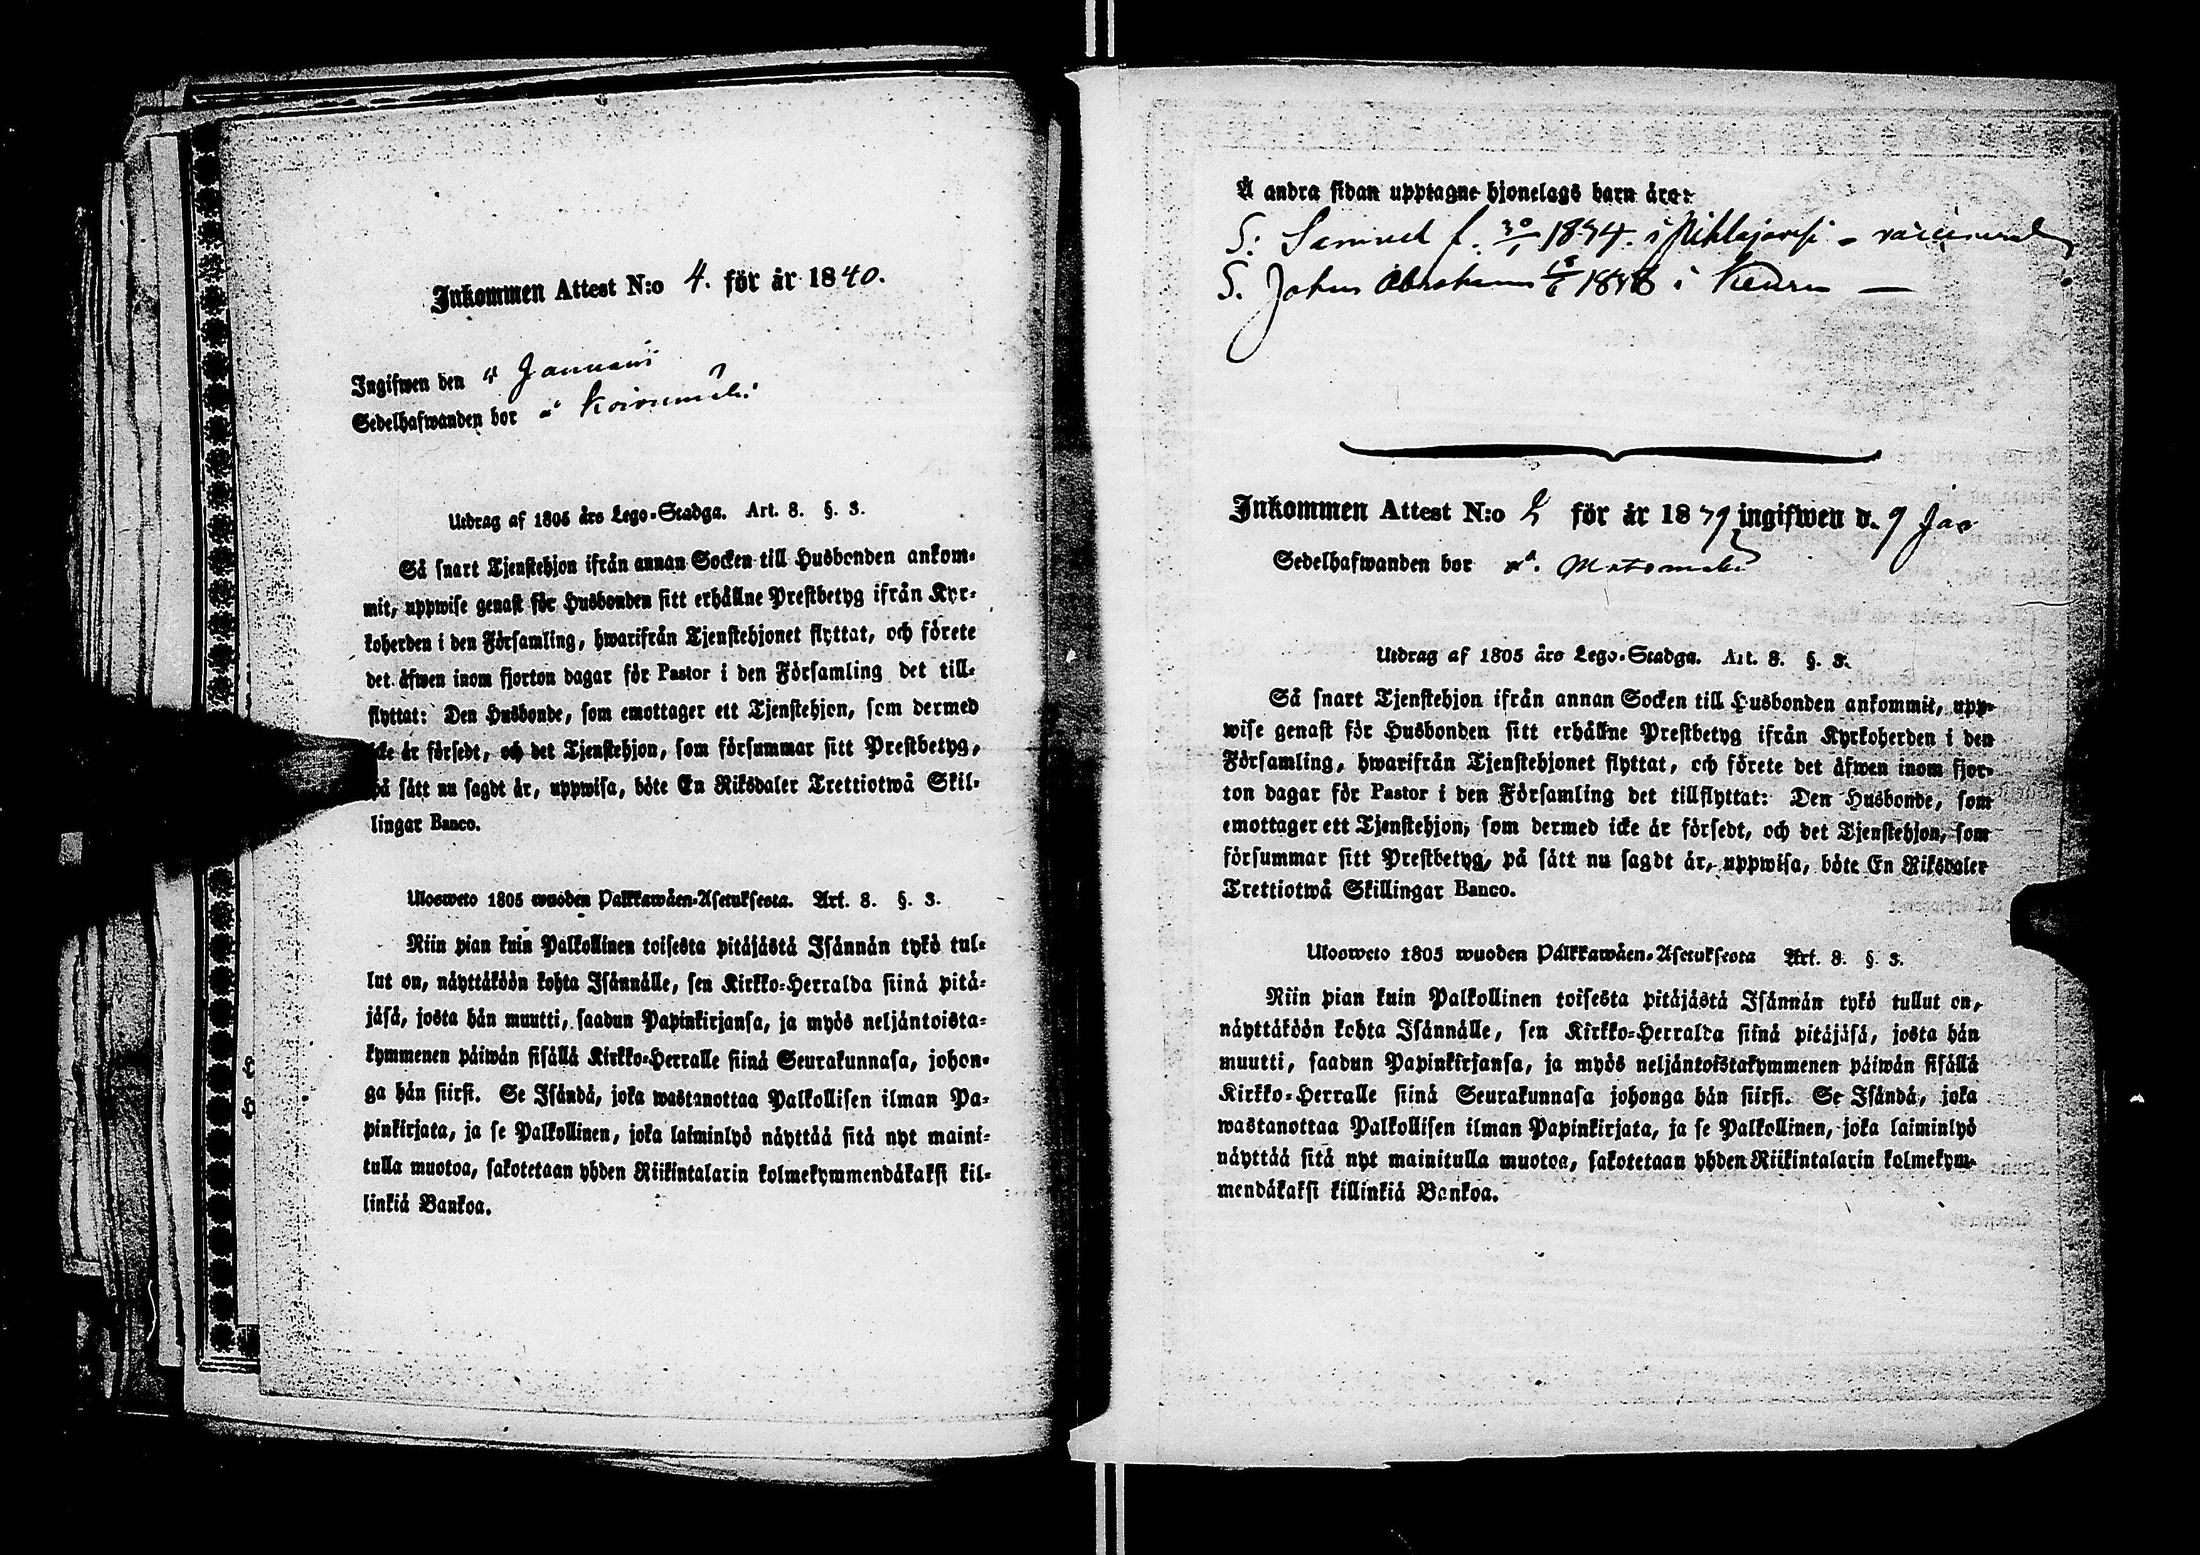 Inkommen Attest N:o 4. för år 1840.
Ingifwen den 4 Januari
Sedelhafwanden bor å Koivumäki
Utdrag af 1805 års Lego-Stadga. Art. 8. §. 3.
Så snart Tjenstehjon ifrån annan Socken till Husbonden ankom-
mit, uppwise genast för Husbonden sitt erhållne Prestbetyg ifrån Kyr-
koherden i den Församling, hwarifrån Tjenstehjonet flyttat, och förete
det äfwen inom fjorton dagar för Pastor i den Församling det till-
flyttat: Den Husbonde, som emottager ett Tjenstehjon, som dermed
icke är försedt, och det Tjenstehjon, som försummar sitt Prestbetyg,
på sätt nu sagdt är, uppwisa, böte En Riksdaler Trettiotwå Skil-
lingar Banco.
Ulosweto 1805 wuoden Palkkawäen-Asetuksesta. Art. 8. §. 3.
Niin pian kuin Palkollinen toisesta pitäjästä Isännän tykö tul-
lut on, näyttäköön kohta Isännälle, sen Kirkko-Herralda siinä pitä-
jäsä, josta hän muutti, saadun Papinkirjansa, ja myös neljäntoista-
kymmenen päiwän sisällä Kirkko-Herralle siinä Seurakunnasa, johon-
ga hän siirsi. Se Isändä, joka wastanottaa Palkollisen ilman Pa-
pinkirjata, ja se Palkollinen, joka laiminlyö näyttää sitä nyt maini-
tulla muotoa, sakotetaan yhden Riikintalarin kolmekymmendäkaksi kil-
linkiä Bankoa.
Å andra sidan upptagne hjonelags barn äro:
S: Samuel f. 30/1 1834. i Pihlajavesi - vaccinerad
S. Johan Abraham 1838 i Keuru —
Inkommen Attest N:o 2 för år 1839 ingifwen d. 9 Jan
Sedelhafwanden bor å
Utdrag af 1805 års Lego-Stadga. Art. 8. §. 3.
Så snart Tjenstehjon ifrån annan Socken till Husbonden ankommit, upp-
wise genast för Husbonden sitt erhållne Prestbetyg ifrån Kyrkoherden i den
Församling, hwarifrån Tjenstehjonet flyttat, och förete det äfwen inom fjor-
ton dagar för Pastor i den Församling det tillflyttat: Den Husbonde, som
emottager ett Tjenstehjon, som dermed icke är försedt, och det Tjenstehjon, som
försummar sitt Prestbetyg, på sätt nu sagdt är, uppwisa, böte En Riksdaler
Trettiotwå Skillingar Banco.
Ulosweto 1805 wuoden Palkkawäen-Asetuksesta Art. 8. §. 3.
Niin pian kuin Palkollinen toisesta pitäjästä Isännän tykö tullut on,
näyttäköön kohta Isännälle, sen Kirkko-Herralda siinä pitäjäsä, josta hän
muutti, saadun Papinkirjansa, ja myös neljäntoistakymmenen päiwän sisällä
Kirkko-Herralle siinä Seurakunnasa johonga hän siirsi. Se Isändä, joka
wastanottaa Palkollisen ilman Papinkirjata, ja se Palkollinen, joka laiminlyö
näyttää sitä nyt mainitulla muotoa, sakotetaan yhden Riikintalarin kolmekym-
mendäkaksi killinkiä Bankoa.